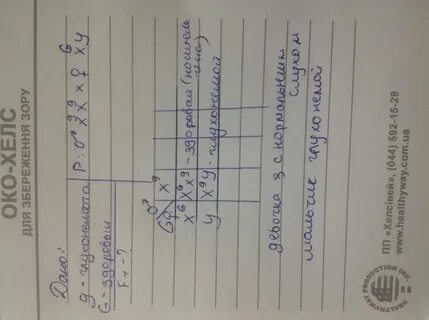 ОКО-ХЕЛС
ДЛЯ ЗБЕРЕЖЕННЯ ЗОРУ
Дано:
g - глухонемота
G - здоровый
F1 - ?
P: ♂ X^g X^g x ♀ X^G Y
G♀ ♂ X^g
X^G X^G X^g - здоровая (носитель гена)
Y X^g Y - глухонемой
девочка з с нормальным слухом
мальчик глухонемой
HEALTHYWAY PRODUCTION INC.
ПП «Хелсівей», (044) 592-15-29
www.healthyway.com.ua